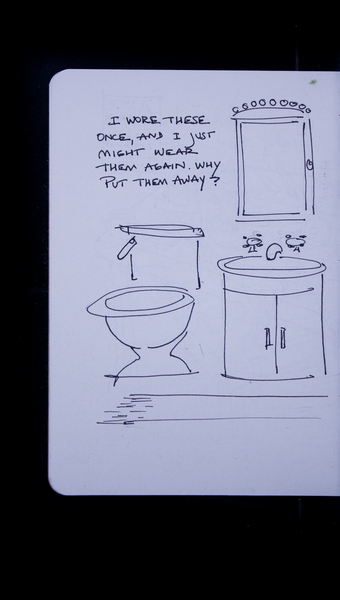 I WORE THESE
ONCE, AND I JUST
MIGHT WEAR
THEM AGAIN. WHY
PUT THEM AWAY?